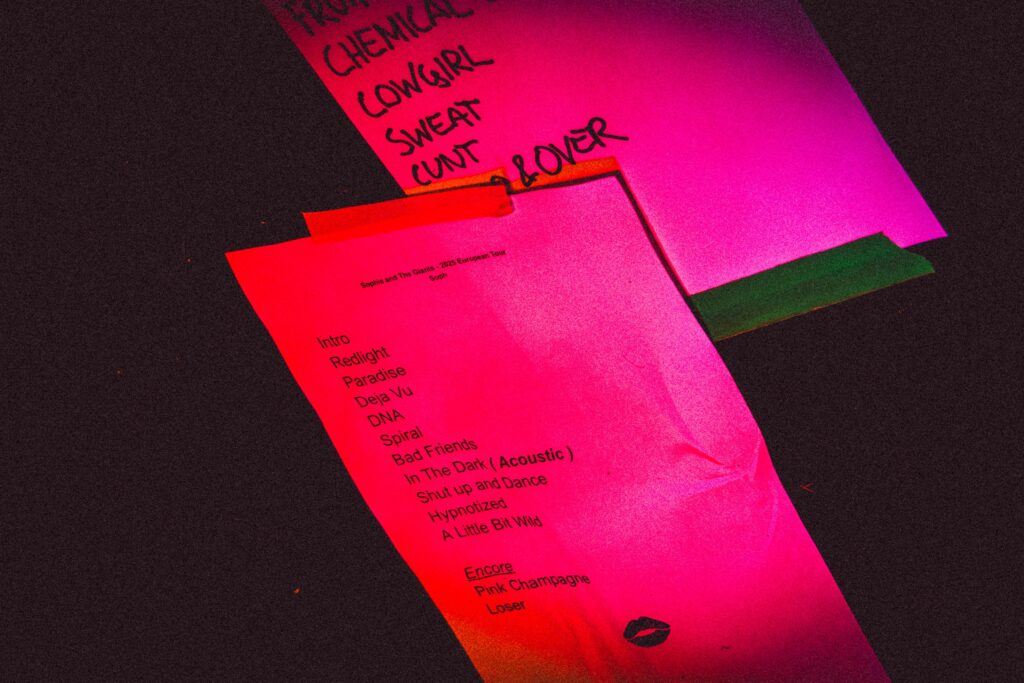 CHEMICAL
COWGIRL
SWEAT
CUNT
& OVER
Sophie and The Giants - 2025 European Tour
Soph
Intro
Redlight
Paradise
Deja Vu
DNA
Spiral
Bad Friends
In The Dark ( Acoustic )
Shut up and Dance
Hypnotized
A Little Bit Wild
Encore
Pink Champagne
Loser